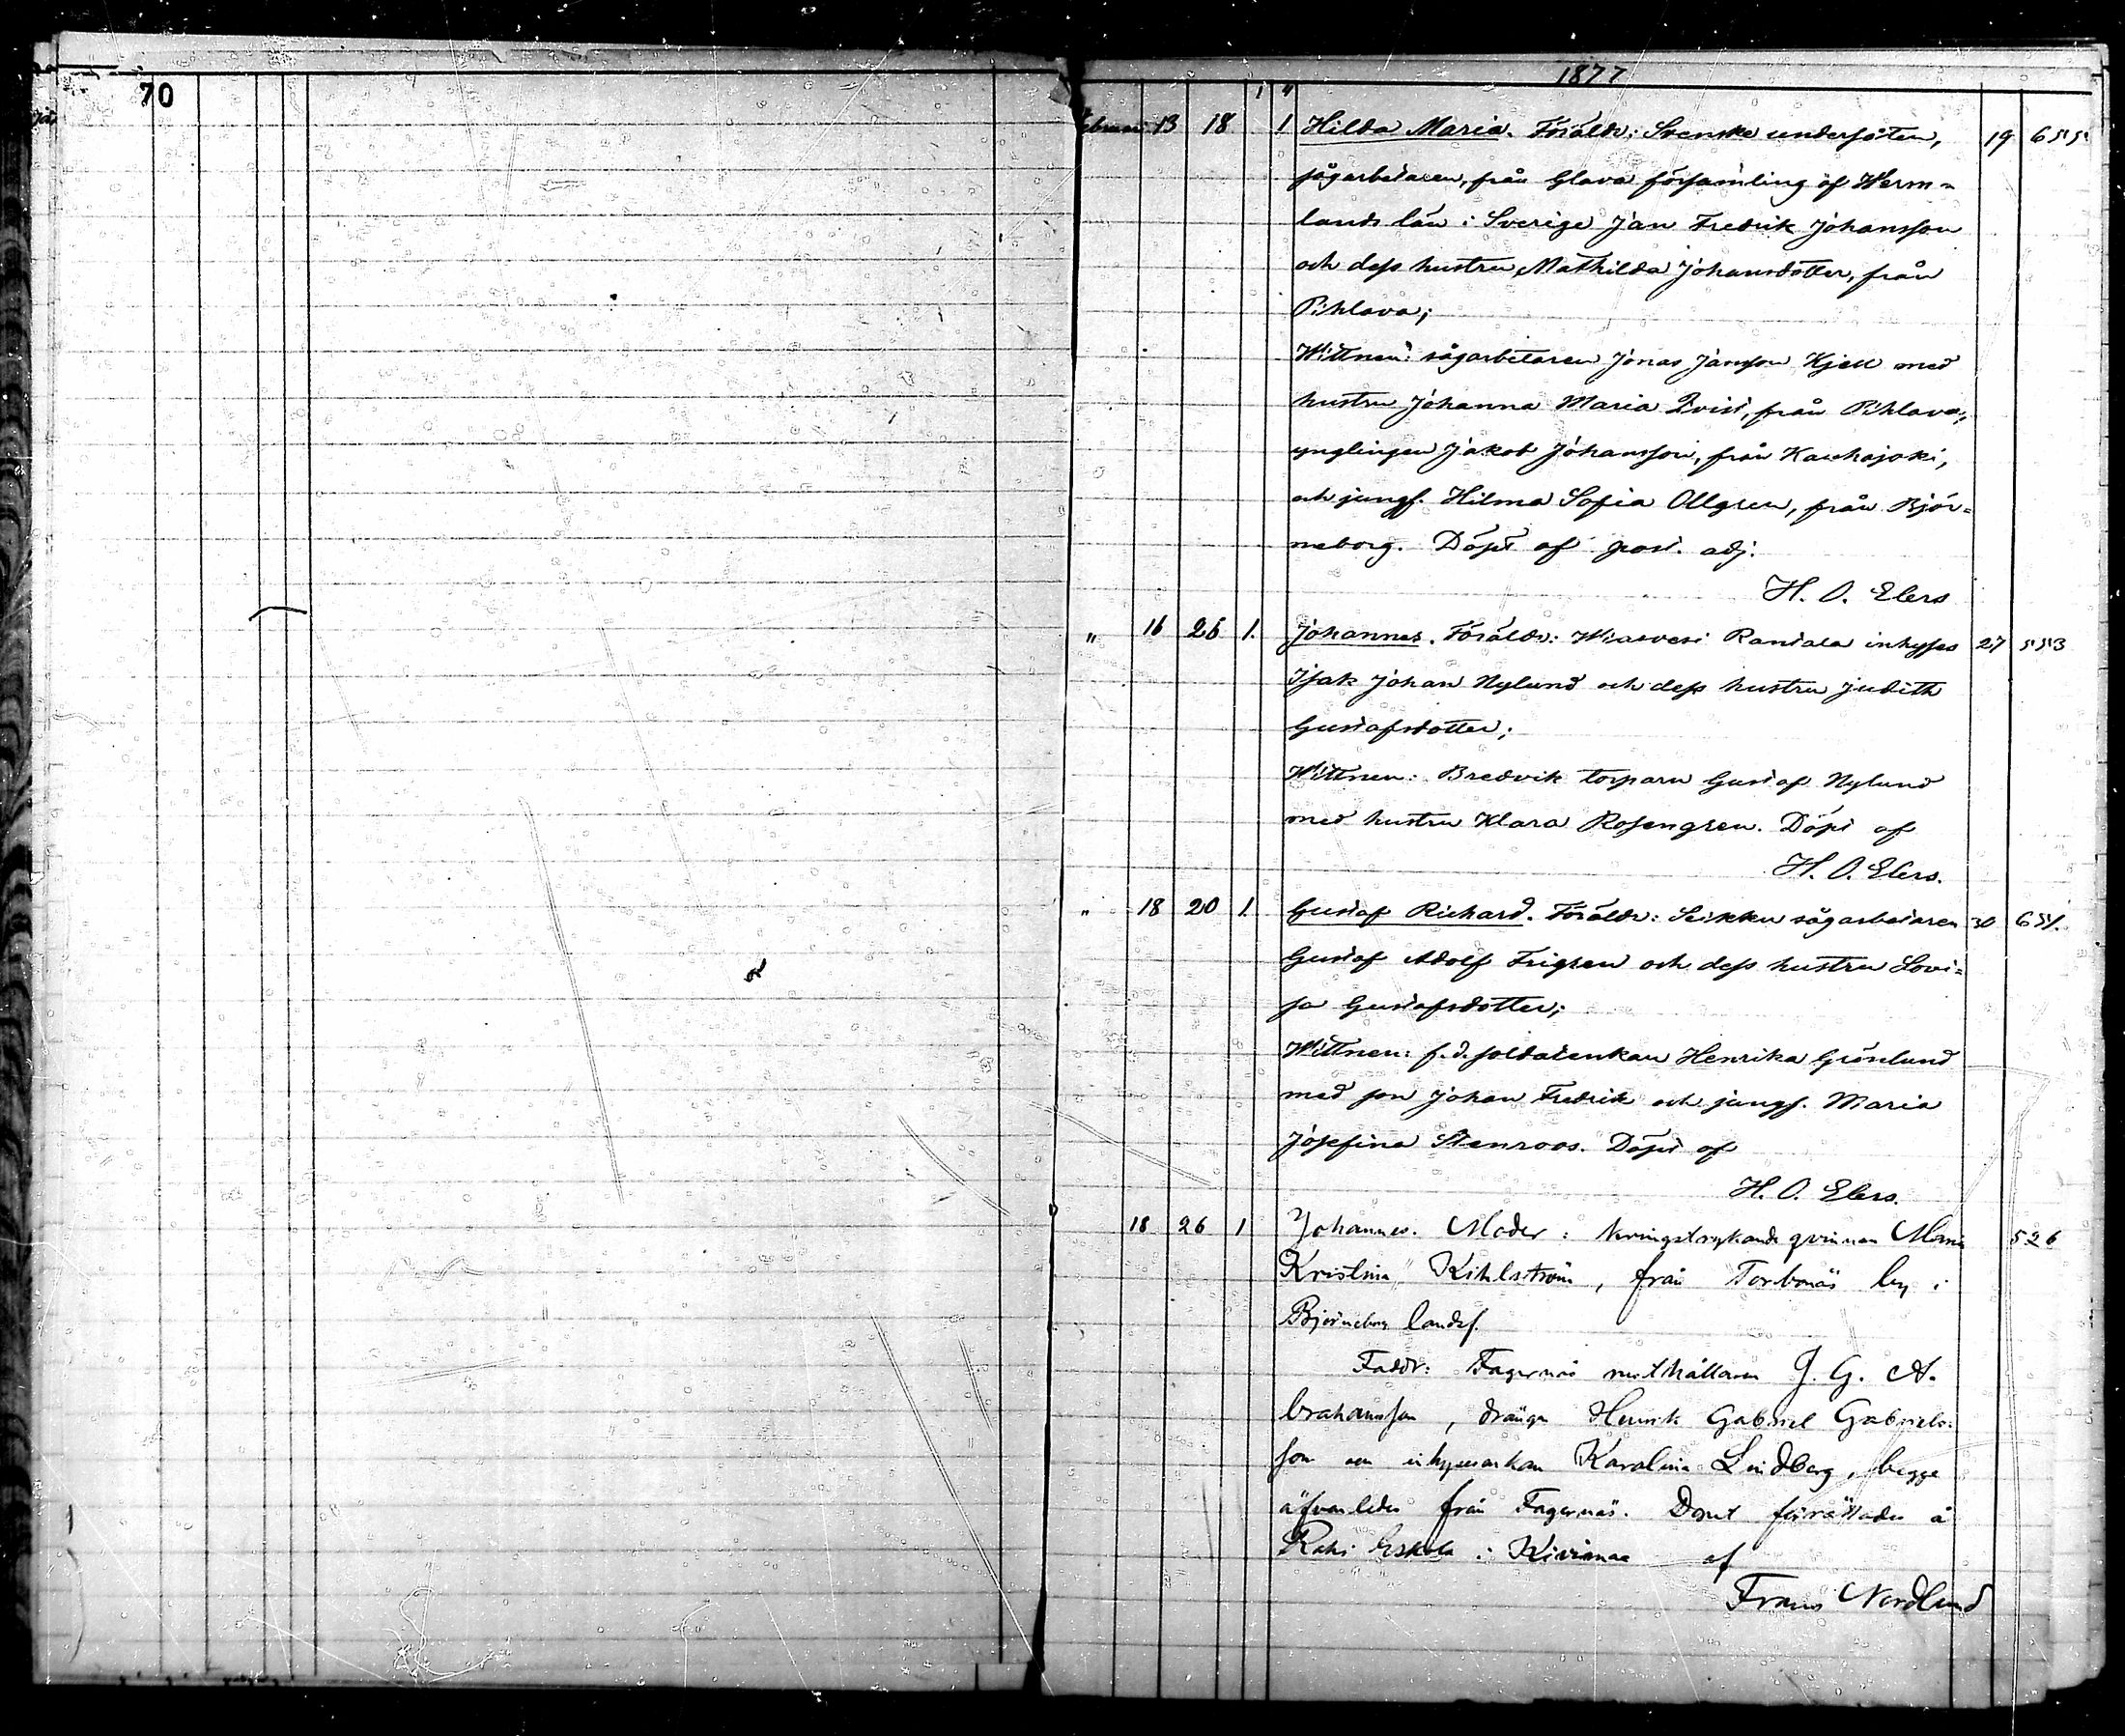 70
1877
Februari 13 18 1 Hilda Maria. Föräldr: Svenske undersåten, 19 655
sågarbetaren, från Glava församling af Werm=
lands län i Sverige Jan Fredrik Johansson
och dess hustru Mathilda Johansdotter, från
Pihlava;
Wittnen: sågarbetaren Jonas Jansson Kjell med
hustru Johanna Maria Qvist, från Pihlava,
ynglingen Jakob Johansson, från Kauhajoki,
och jungf. Hilma Sofia Ollgren, från Björ=
neborg. Döpt af past. adj.
H. O. Elers
" 16 26 1. Johannes. Föräldr: Wiasvesi Rantala inhyses 27 553
Isak Johan Nylund och dess hustru Judith
Gustafsdotter;
Wittnen: Bredvik torparn Gustaf Nylund
med hustru Klara Rosengren. Döpt af
H. O. Elers.
" 18 20 1. Gustaf Richard. Föräldr: Seikku sågarbetaren 30 651.
Gustaf Adolf Frigren och dess hustru Lovi=
sa Gustafsdotter;
Wittnen: f. d. soldatenkan Henrika Grönlund
med son Johan Fredrik och jungf. Maria
Josefina Stenroos. Döpt af
H. O. Elers.
18 26 1 Johannes. Moder: kringstrykande qvinnan Maria 526
Kristina Kihlström, från Torbonäs by i
Björneborg landsf.
Faddr: Fagernäs J. G. A.
brahamsson, drängen Henrik Gabriel Gabriels=
son och inhysesenkan Karolina Lindberg, begge
äfvenledes från Fagernäs. Dopet förrättades å
i af
Frans Nordlund